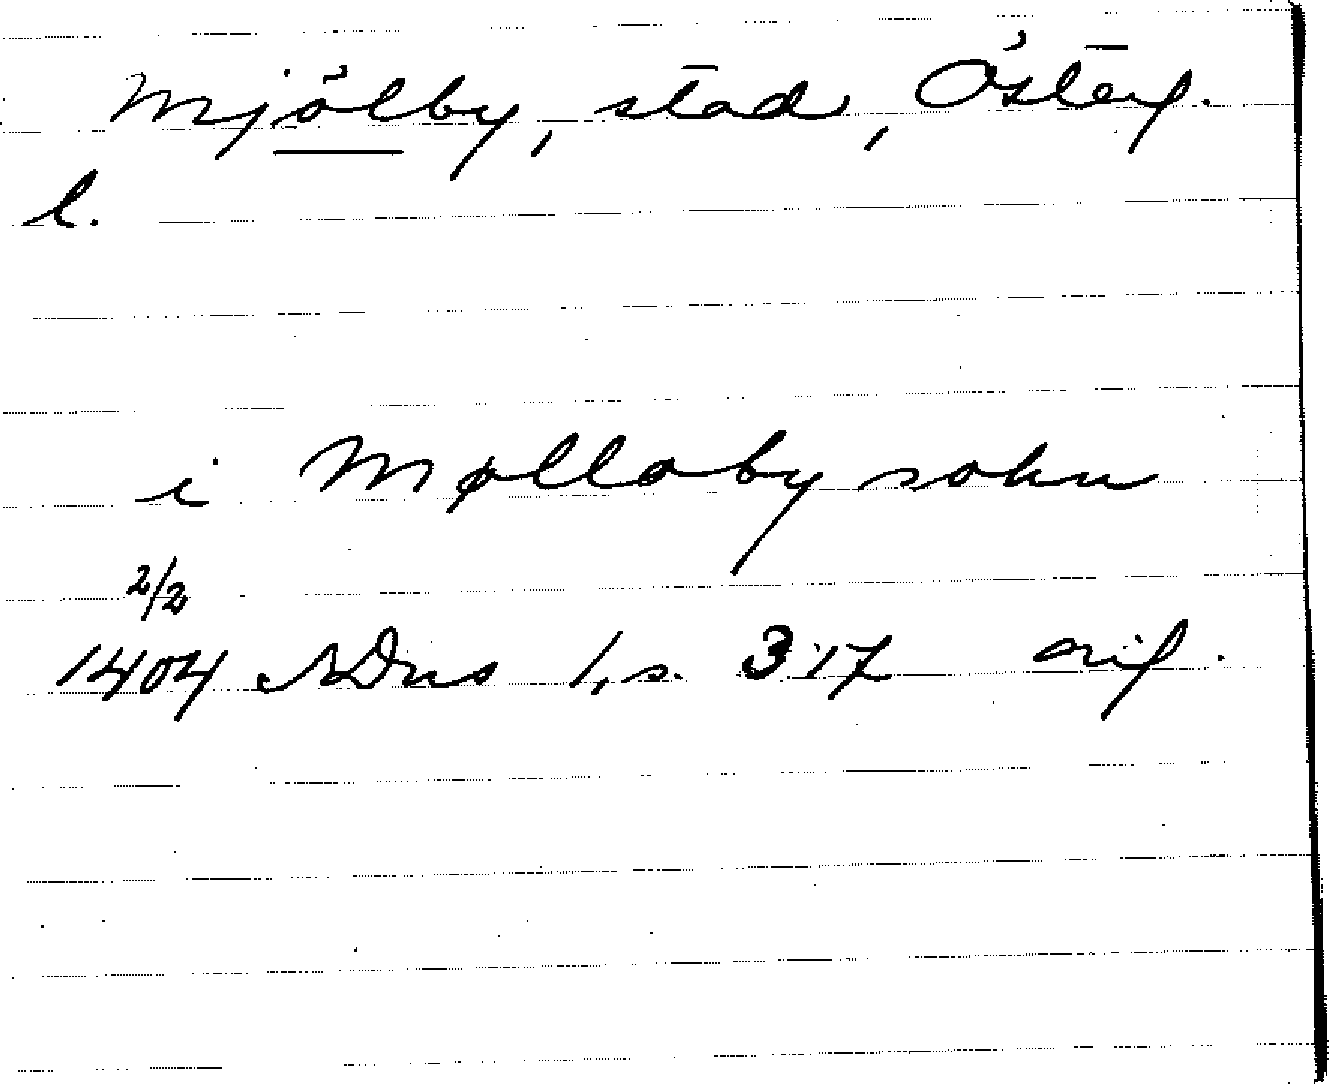 Mjölby, stad, Österg.
l.
i Møllaby sokn
2/2
1404 SDns 1, s. 317 orig.